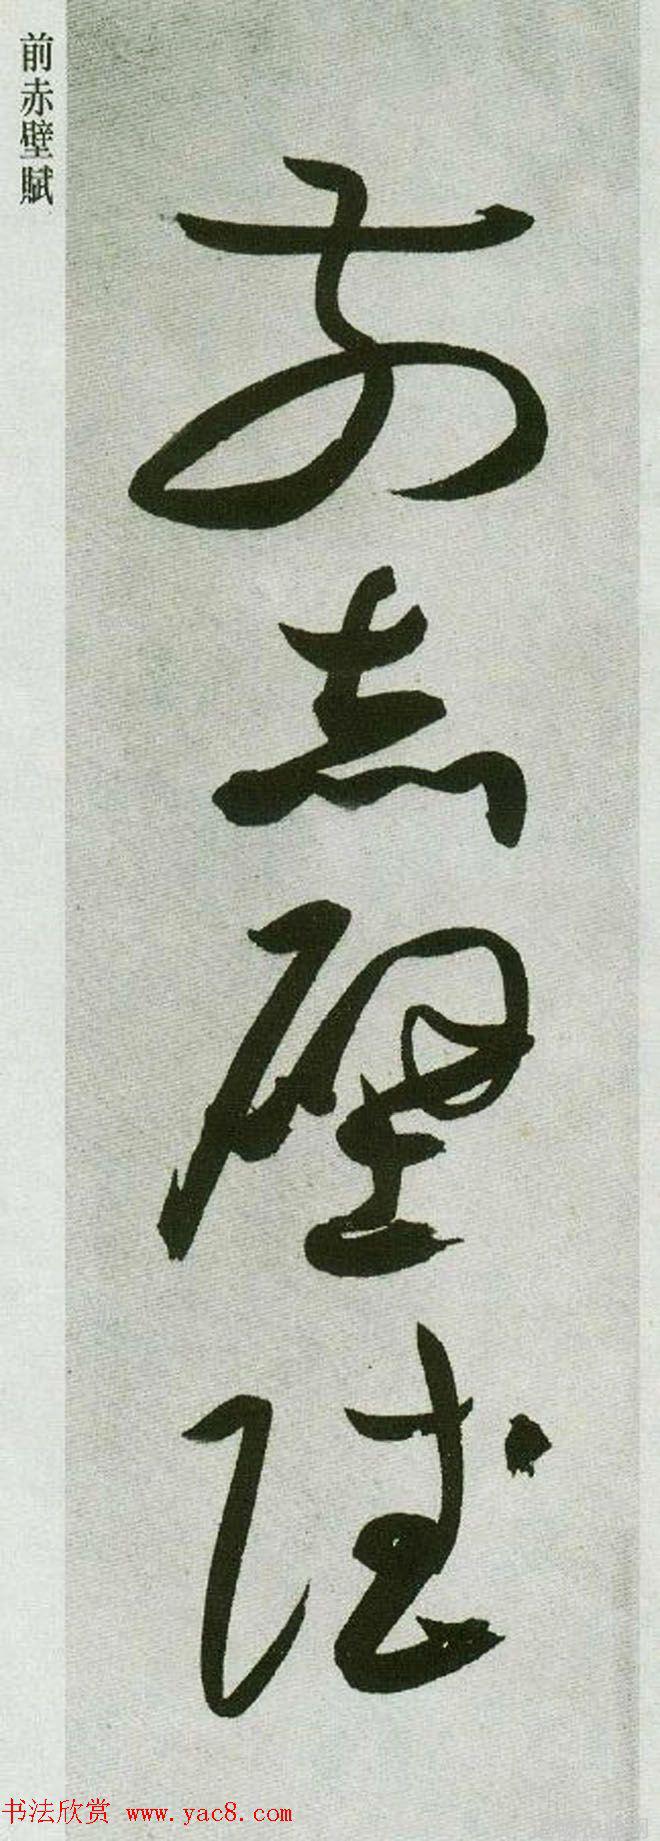 前赤壁賦
前赤壁賦
书法欣赏 www.yac8.com